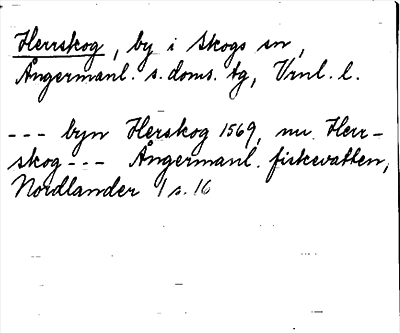 Herrskog, by i Skogs sn,
Ångermanl. s. doms. tg, Vrnl. l.
--- byn Herskog 1569, nu Herr-
skog --- Ångermanl. fiskevatten,
Nordlander 1 s. 16